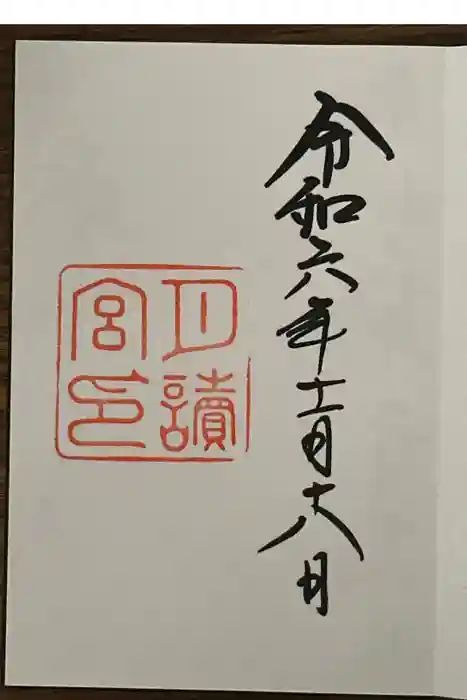 令和六年十二月十八日
月讀
宮印